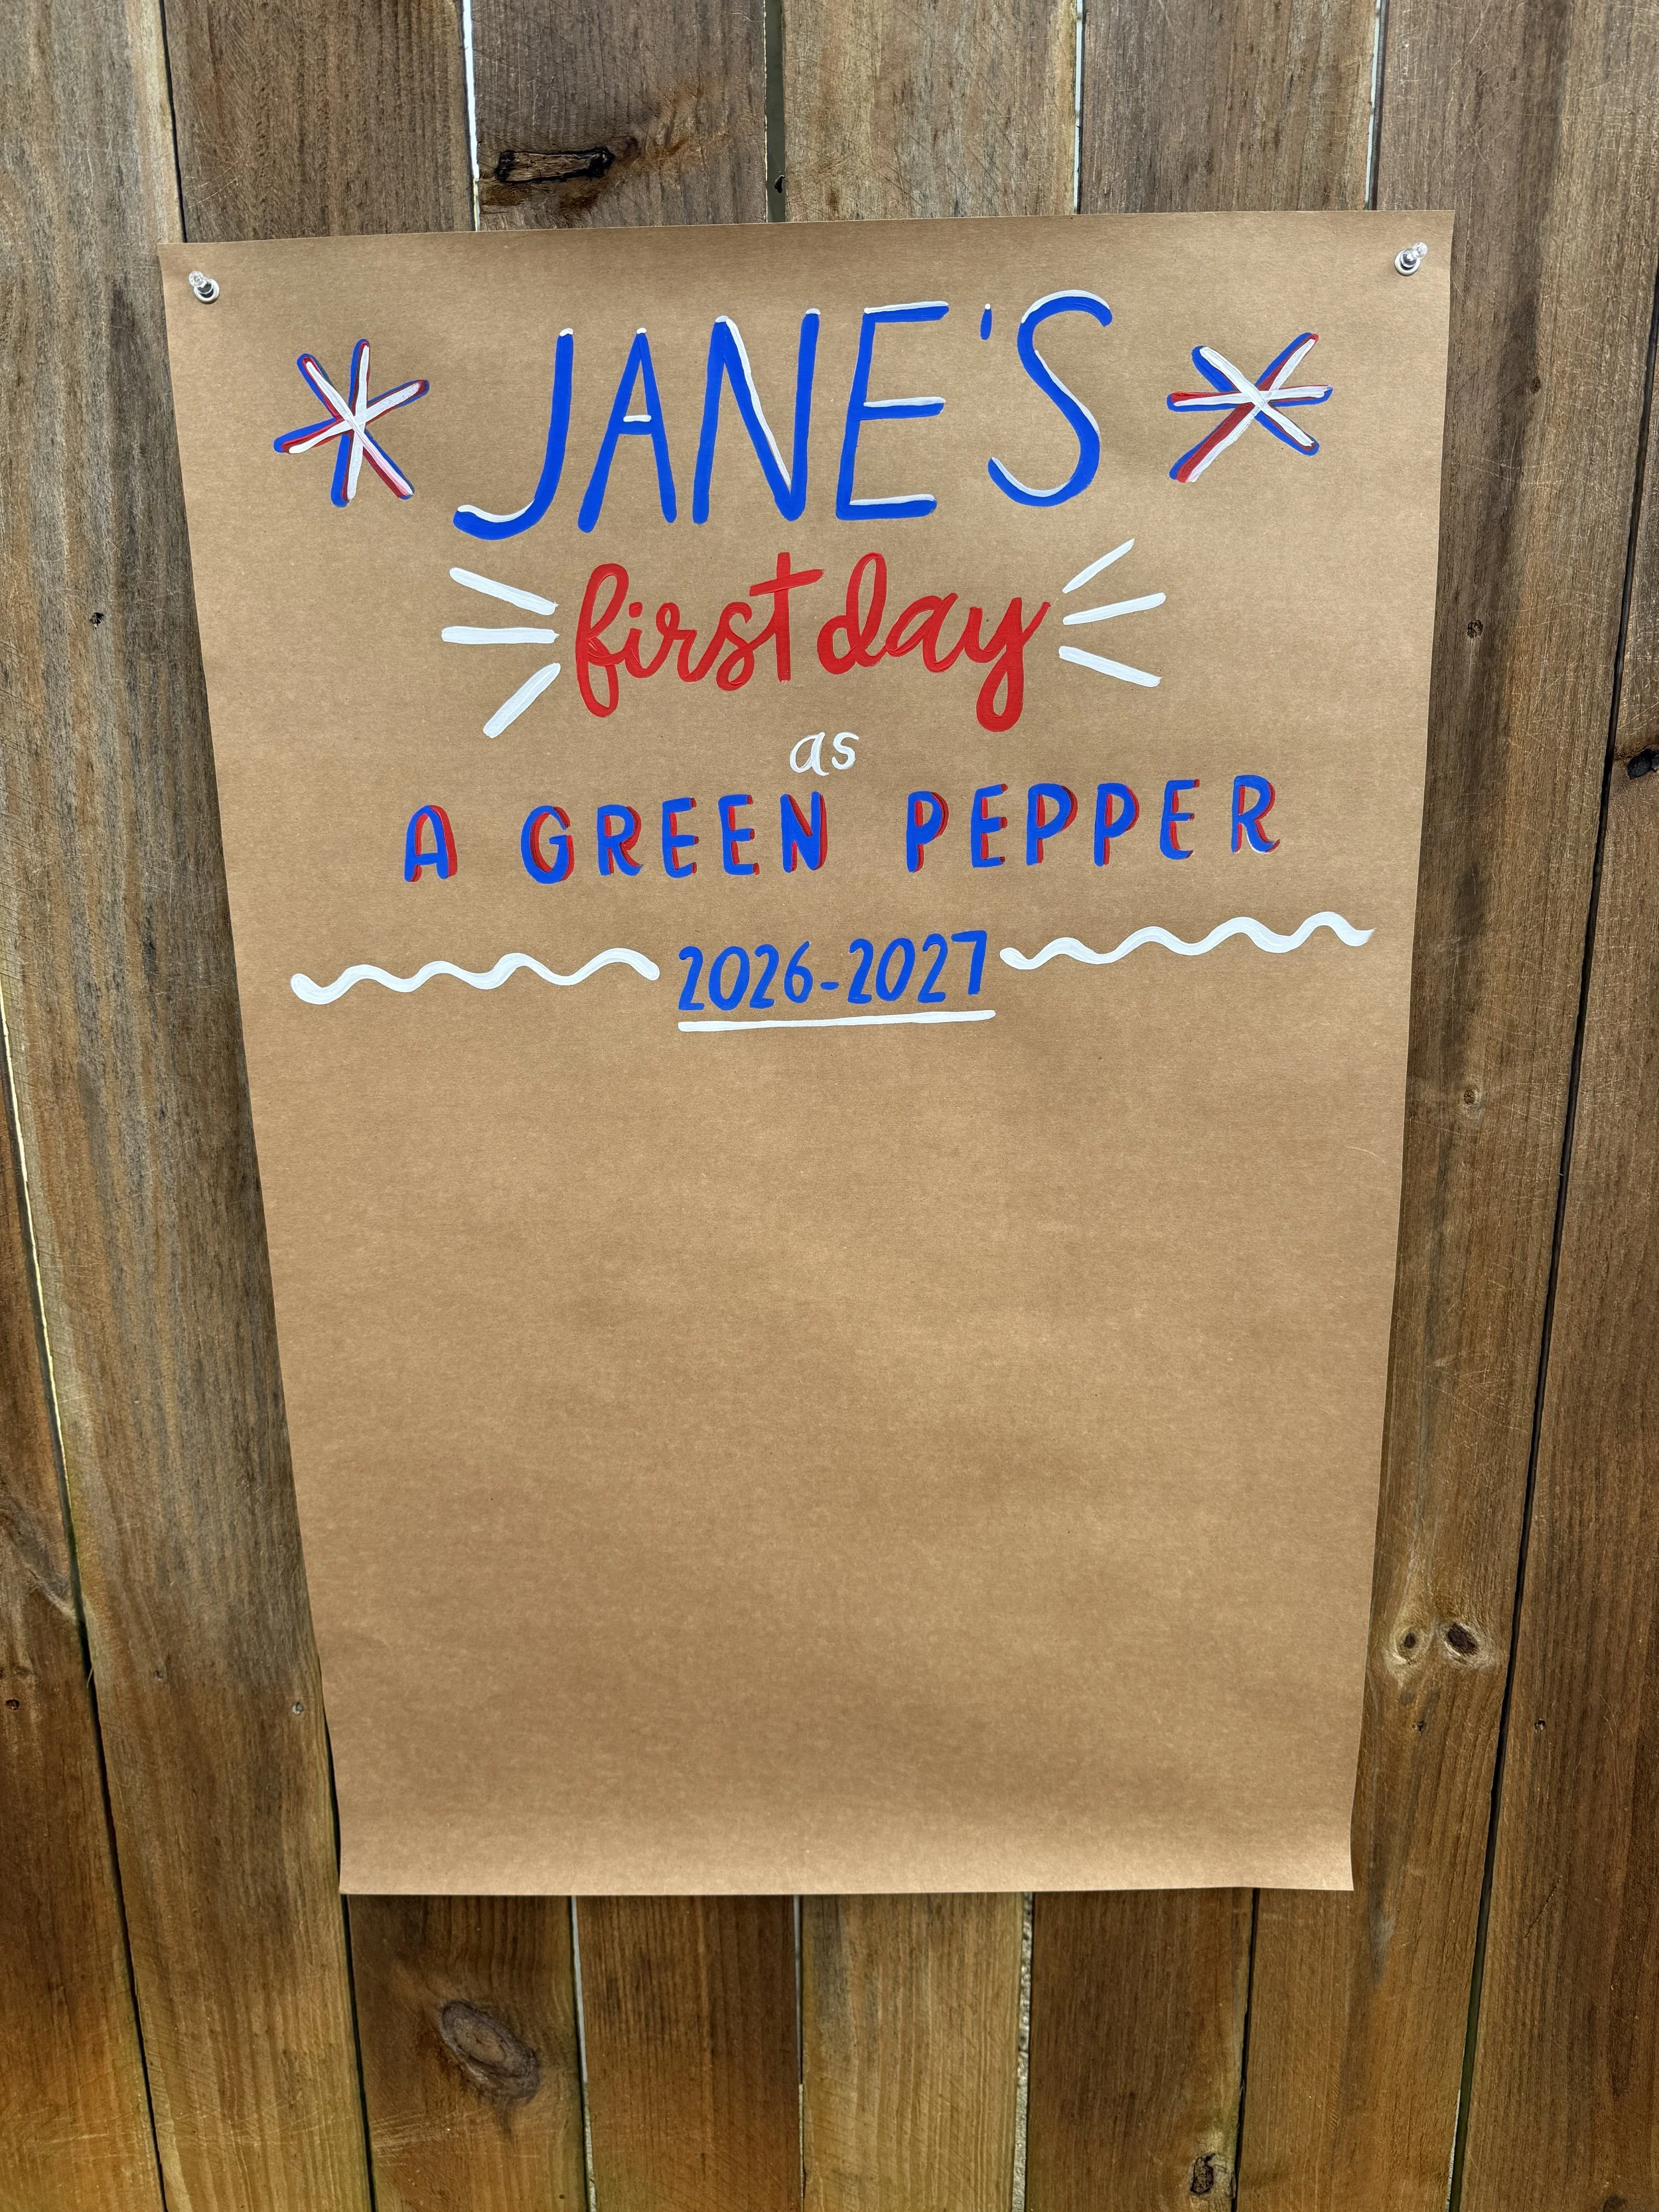 JANE'S
first day
as
A GREEN PEPPER
2026-2027